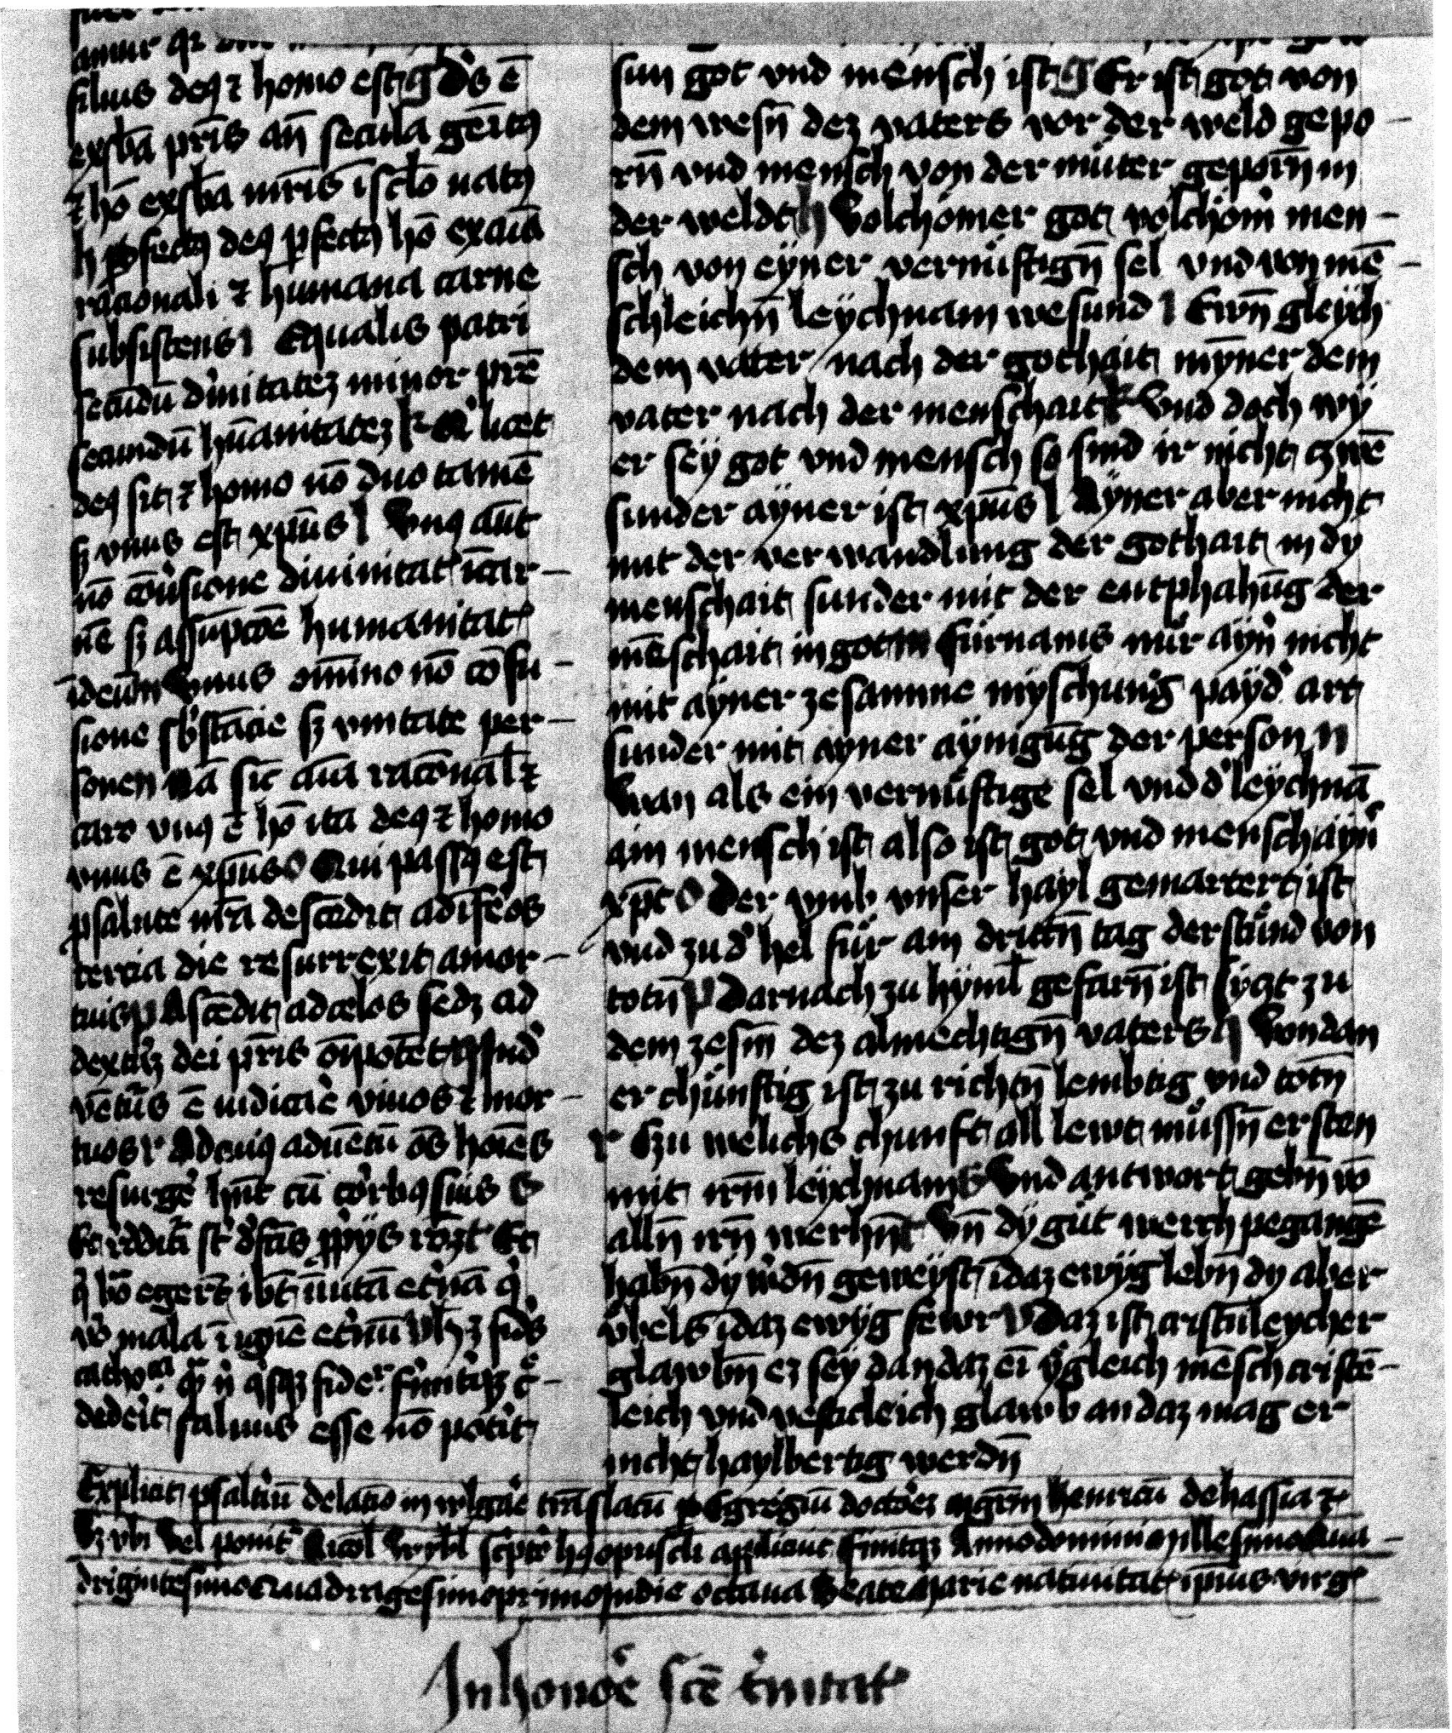 filius deus ⁊ homo est g Deus ē
ex sb̄a pr̄is an̄ secula genitus
⁊ hō ex sb̄a mr̄is ī sclo natus
h perfectus deus perfectus hō ex aīa
racionali ⁊ humana carne
subsistens i Equalis patri
secūdū diuinitatez minor pr̄e
secundū hūanitatez k Qui licet
deus sit ⁊ homo nō duo tamē
sz vnus est xp̄us l Vnus aūt
nō cōuersione diuinitat ī car-
nē sz assūpcōe humanitat
ī deum Vnus om̄ino nō cōfu-
sione sb̄stācie sz vnitate per-
sonen Nā sic aīa racōnal ⁊
caro vnus ē hō ita deus ⁊ homo
vnus ē xp̄us o Qui passus est
p salute nr̄a descēdit ad īferos
tercia die resurrexit a mor-
tuis p Ascēdit ad celos sedz ad
dexterāz dei pr̄is om̄ipotēt q Inde
vētur̄us ē iudicare viuos ⁊ mor-
tuos r Ad cuius aduētū om̄s hoīes
resurgere hn̄t cū corpibus suis s
Et reddituri st de factis p̄p̄ijs rōz t Et
q bō egerūt ibūt ī vitā et̄nā q
vo mala ī ignē et̄nū v hec ē fides
catholica quā nisi quisqz fideliter firmiterqz c-
dederit saluus esse nō poterit
sun got vnd mensch ist g Er ist got von
dem wesn̄ dez vaters vor der weld gepo-
rn̄ vnd mensch von der muter geporn̄ in
der weldt h Volchomer got volchom̄ men-
sch von eyner vernuftign̄ sel vnd von mē-
schleichn̄ leychnam wesund i Ewn̄ gleych
dem vater nach der gothait mȳner dem
vater nach der menschait k Vnd doch wy
er sey got vnd mensch so sind ir nicht czwē
sunder ayner ist xp̄us l Ayner aber nicht
mit der verwandlung der gothait in dy
menschait sunder mit der entphahūg der
mēschait in got m Furnams nur ayn̄ nicht
mit ayner zesamme myschung payd' art
sunder mit ayner aynigūg der person n
Wan als ein vernuftige sel vnd d' leychnā
ain mensch ist also ist got vnd mensch ayn̄
xp̄c o Der vmb vnser hayl gemartert ist
vnd zu d' hel fur am dritn̄ tag derstund von
totn̄ p Darnach zu hyml gefarn̄ ist sycz zu
dem zesm̄ dez almechtign̄ vaters q Von dan
er chunftig ist zu richtn̄ lembtig vnd totn̄
r Czu welichs chunft all lewt mussn̄ ersten
mit irm̄ leychnam s Vnd antwort gebn̄ vō
alln̄ irn̄ werhn̄ t Vn̄ dy gut werch pegangē
habn̄ dy wdn̄ geweyst ī daz ewyg lebn̄ dy aber
vbels ī daz ewyg fewr v Daz ist cristn̄leycher
glawbn̄ ez sey dan daz eī ygleich mēsch cristē-
leich vnd vestcleich glawb an daz mag er
nicht haylbertig werdn̄
Explicit psalteriū de latio in wlgare trāslatū p Egregiū doctorez mgr̄m Heinricū de hassia ⁊
Anno domini Millesimo Qua-
dringentesimo Quadragesimo primo In die octaua Beate Marie natiuitat ip̄ius virḡ
In honore scē trinitat